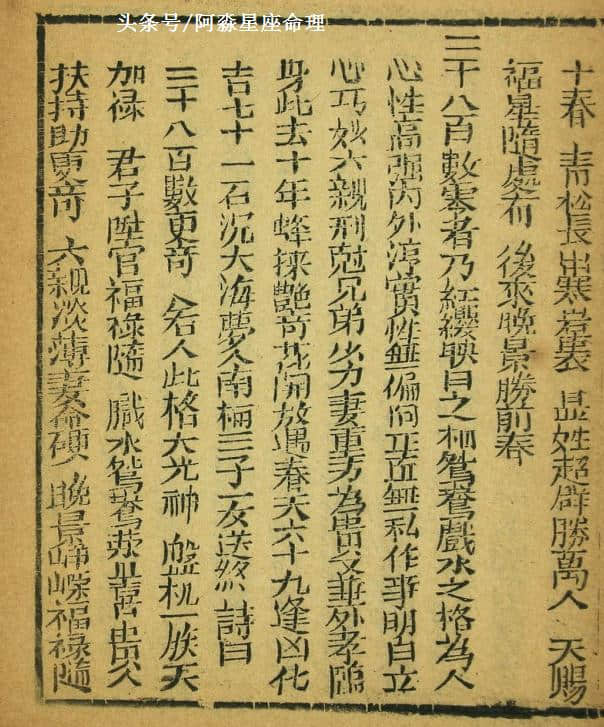 头条号/阿淼星座命理
十春 青松長出寒岩裏 显姓超群勝萬人 天賜
福星隨處有 後來晚景勝前春
三千八百數零者乃紅纓映日之柄鴛鴦戲水之格為人
心性高強內外淳實性無偏向正直無私作事明白立
心巧妙六親刑尅兄弟少力妻重方為貴父母外孝臨
身此去十年蜂採艷奇花開放遇春天六十九逢凶化
吉七十一石沉大海夢入南柯三子一女送終 詩曰
三千八百數更奇 若人此格大光神 一族天
加禄 君子陞官福禄隨 戲水鴛鴦 喜貴人
扶持助更奇 六親淡薄妻命硬 晚景崢嶸福禄隨